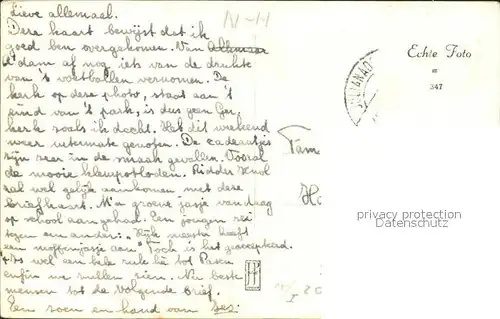 Lieve allemaal.
Deze kaart bewijst dat ik
goed ben overgekomen. Van
A'dam af nog iets van de drukte
van 't voetballen vernomen. De
kerk op deze photo, staat aan 't
eind van 't park, is dus geen Ger.
kerk zoals ik dacht. Het dit weekend
weer intermate genoten. De cadeautjes
zijn zeer in de smaak gevallen. Vooral
de mooie kleurpotloden. Ridder
zal wel gelijk aankomen met deze
briefkaart. M'n groene jasje vandaag
op school aan gehad. Een jongen zei
tegen een ander: "Kijk meester heeft
een moffenjasje aan". Toch is het geaccepteerd.
't Is wel een hele ruk tot Pasen
enfin we zullen zien. Nu beste
mensen tot de volgende brief.
Een zoen en hand van
IV-14
Echte Foto
347
Fam
Ho
privacy protection
by veikkos.com